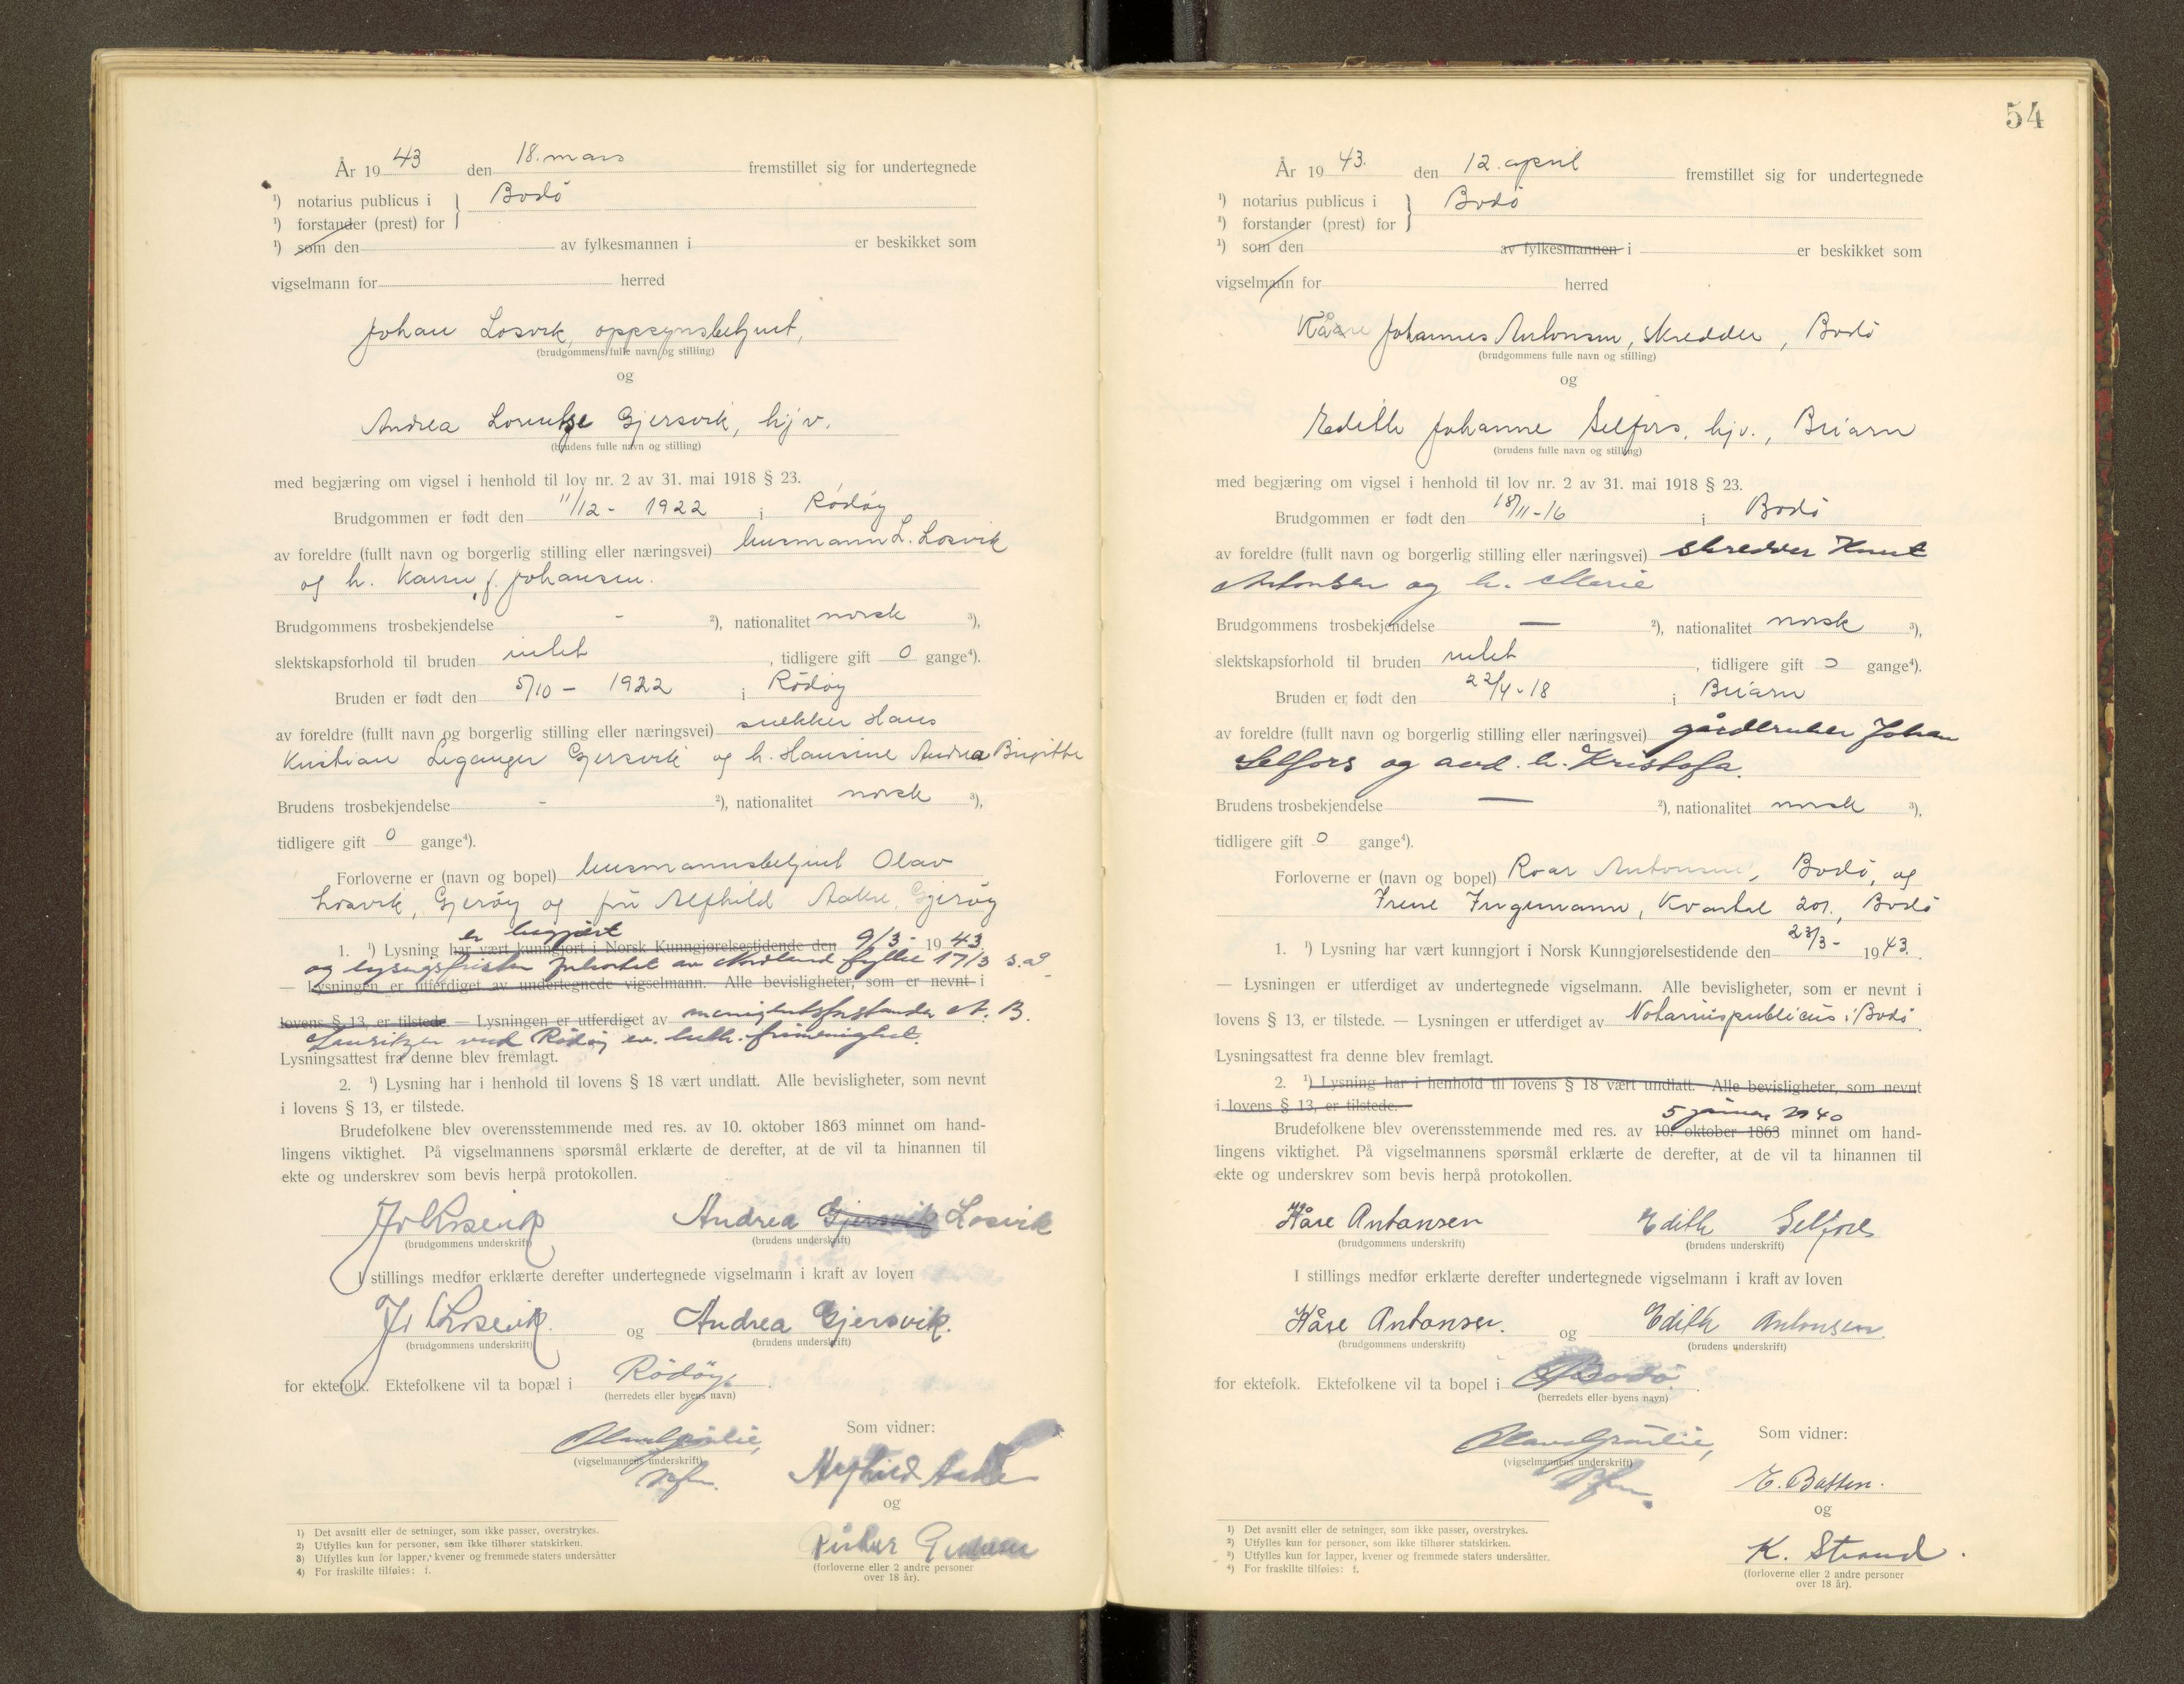 År 19 43 den 18. mars fremstillet sig for undertegnede
¹) notarius publicus i } Bodö
¹) forstander (prest) for
¹) som den av fylkesmannen i er beskikket som
vigselmann for herred
Johan Losvik, oppsynsbetjent,
(brudgommens fulle navn og stilling)
og
Andrea Lorentse Gjersvik, hjv.
(brudens fulle navn og stilling)
med begjæring om vigsel i henhold til lov nr. 2 av 31. mai 1918 § 23.
Brudgommen er født den 11/12 - 1922 i Rödöy
av foreldre (fullt navn og borgerlig stilling eller næringsvei) husmann L. Losvik
og h. Karen f. Johansen.
Brudgommens trosbekjendelse - ²), nationalitet norsk ³),
slektskapsforhold til bruden intet, tidligere gift 0 gange⁴).
Bruden er født den 5/10 - 1922 i Rödöy
av foreldre (fullt navn og borgerlig stilling eller næringsvei) snekker Hans
Kristian Leganger Gjersvik og h. Hansine Andrea Birgitte
Brudens trosbekjendelse - ²), nationalitet norsk ³),
tidligere gift 0 gange⁴).
Forloverne er (navn og bopel) husmannsbetjent Olav
Losvik, Gjeröy og frü Alfhild Aakre, Gjeröy
er begjært
1. ¹) Lysning har vært kunngjort i Norsk Kunngjørelsestidende den 9/3- 19 43.
og lysingsfristen forkortet av Nordland fylke 17/3 s.å.
— Lysningen er utferdiget av undertegnede vigselmann. Alle bevisligheter, som er nevnt i
lovens § 13, er tilstede. — Lysningen er utferdiget av menighetsforstander A. B.
Lauritzen ved Rödöy ev. luth. frimenighet.
Lysningsattest fra denne blev fremlagt.
2. ¹) Lysning har i henhold til lovens § 18 vært undlatt. Alle bevisligheter, som nevnt
i lovens § 13, er tilstede.
Brudefolkene blev overensstemmende med res. av 10. oktober 1863 minnet om hand-
lingens viktighet. På vigselmannens spørsmål erklærte de derefter, at de vil ta hinannen til
ekte og underskrev som bevis herpå protokollen.
Jo Losvik Andrea Gjersvik Losvik
(brudgommens underskrift) (brudens underskrift)
I stillings medfør erklærte derefter undertegnede vigselmann i kraft av loven
Jo Losvik. og Andrea Gjersvik.
(brudgommens underskrift) (brudens underskrift)
for ektefolk. Ektefolkene vil ta bopæl i Rödöy.
(herredets eller byens navn)
Som vidner:
(vigselmannens underskrift)
Alfhild Aakre
og
(forloverne eller 2 andre personer
over 18 år).
1) Det avsnitt eller de setninger, som ikke passer, overstrykes.
2) Utfylles kun for personer, som ikke tilhører statskirken.
3) Utfylles kun for lapper, kvener og fremmede staters undersåtter
4) For fraskilte tilføies: f.
54
År 19 43. den 12. april fremstillet sig for undertegnede
¹) notarius publicus i } Bodö
¹) forstander (prest) for
¹) som den av fylkesmannen i er beskikket som
vigselmann for herred
Kåre Johannes Antonsen, skredder, Bodö
(brudgommens fulle navn og stilling)
og
Edith Johanne Selfors, hjv., Beiarn
(brudens fulle navn og stilling)
med begjæring om vigsel i henhold til lov nr. 2 av 31. mai 1918 § 23.
Brudgommen er født den 18/11-16 i Bodö
av foreldre (fullt navn og borgerlig stilling eller næringsvei) skredder Knut
Antonsen og h. Marie
Brudgommens trosbekjendelse — ²), nationalitet norsk ³),
slektskapsforhold til bruden intet, tidligere gift 0 gange⁴).
Bruden er født den 22/4-18 i Beiarn
av foreldre (fullt navn og borgerlig stilling eller næringsvei) gårdbruker Johan
Selfors og avd. h. Kristofa.
Brudens trosbekjendelse — ²), nationalitet norsk ³),
tidligere gift 0 gange⁴).
Forloverne er (navn og bopel) Roar Antonsen, Bodö, og
Irene Ingemann, Kvartal 201, Bodö
1. ¹) Lysning har vært kunngjort i Norsk Kunngjørelsestidende den 23/3- 19 43.
— Lysningen er utferdiget av undertegnede vigselmann. Alle bevisligheter, som er nevnt i
lovens § 13, er tilstede. — Lysningen er utferdiget av Notarius publicus i Bodö
Lysningsattest fra denne blev fremlagt.
2. ¹) Lysning har i henhold til lovens § 18 vært undlatt. Alle bevisligheter, som nevnt
i lovens § 13, er tilstede.
5 januar 1940
Brudefolkene blev overensstemmende med res. av 10. oktober 1863 minnet om hand-
lingens viktighet. På vigselmannens spørsmål erklærte de derefter, at de vil ta hinannen til
ekte og underskrev som bevis herpå protokollen.
Kåre Antonsen Edith Selfors
(brudgommens underskrift) (brudens underskrift)
I stillings medfør erklærte derefter undertegnede vigselmann i kraft av loven
Kåre Antonsen. og Edith Antonsen.
(brudgommens underskrift) (brudens underskrift)
for ektefolk. Ektefolkene vil ta bopel i Bodö.
(herredets eller byens navn)
Som vidner:
(vigselmannens underskrift)
E. Batten.
og
K. Strand.
(forloverne eller 2 andre personer
over 18 år).
¹) Det avsnitt eller de setninger, som ikke passer, overstrykes.
²) Utfylles kun for personer, som ikke tilhører statskirken.
³) Utfylles kun for lapper, kvener og fremmede staters undersåtter.
⁴) For fraskilte tilføies: f.